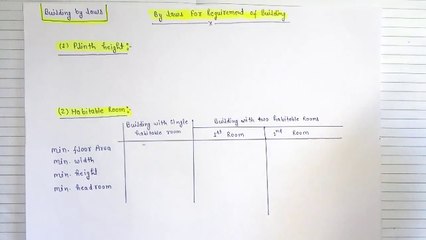 Building by laws
By laws For Requirement of Building
x
(1) Plinth height:-
(2) Habitable Room:-
Building with single habitable room
Building with two habitable Rooms
1st Room
2nd Room
min. floor Area
min. width
min. height
min. head room